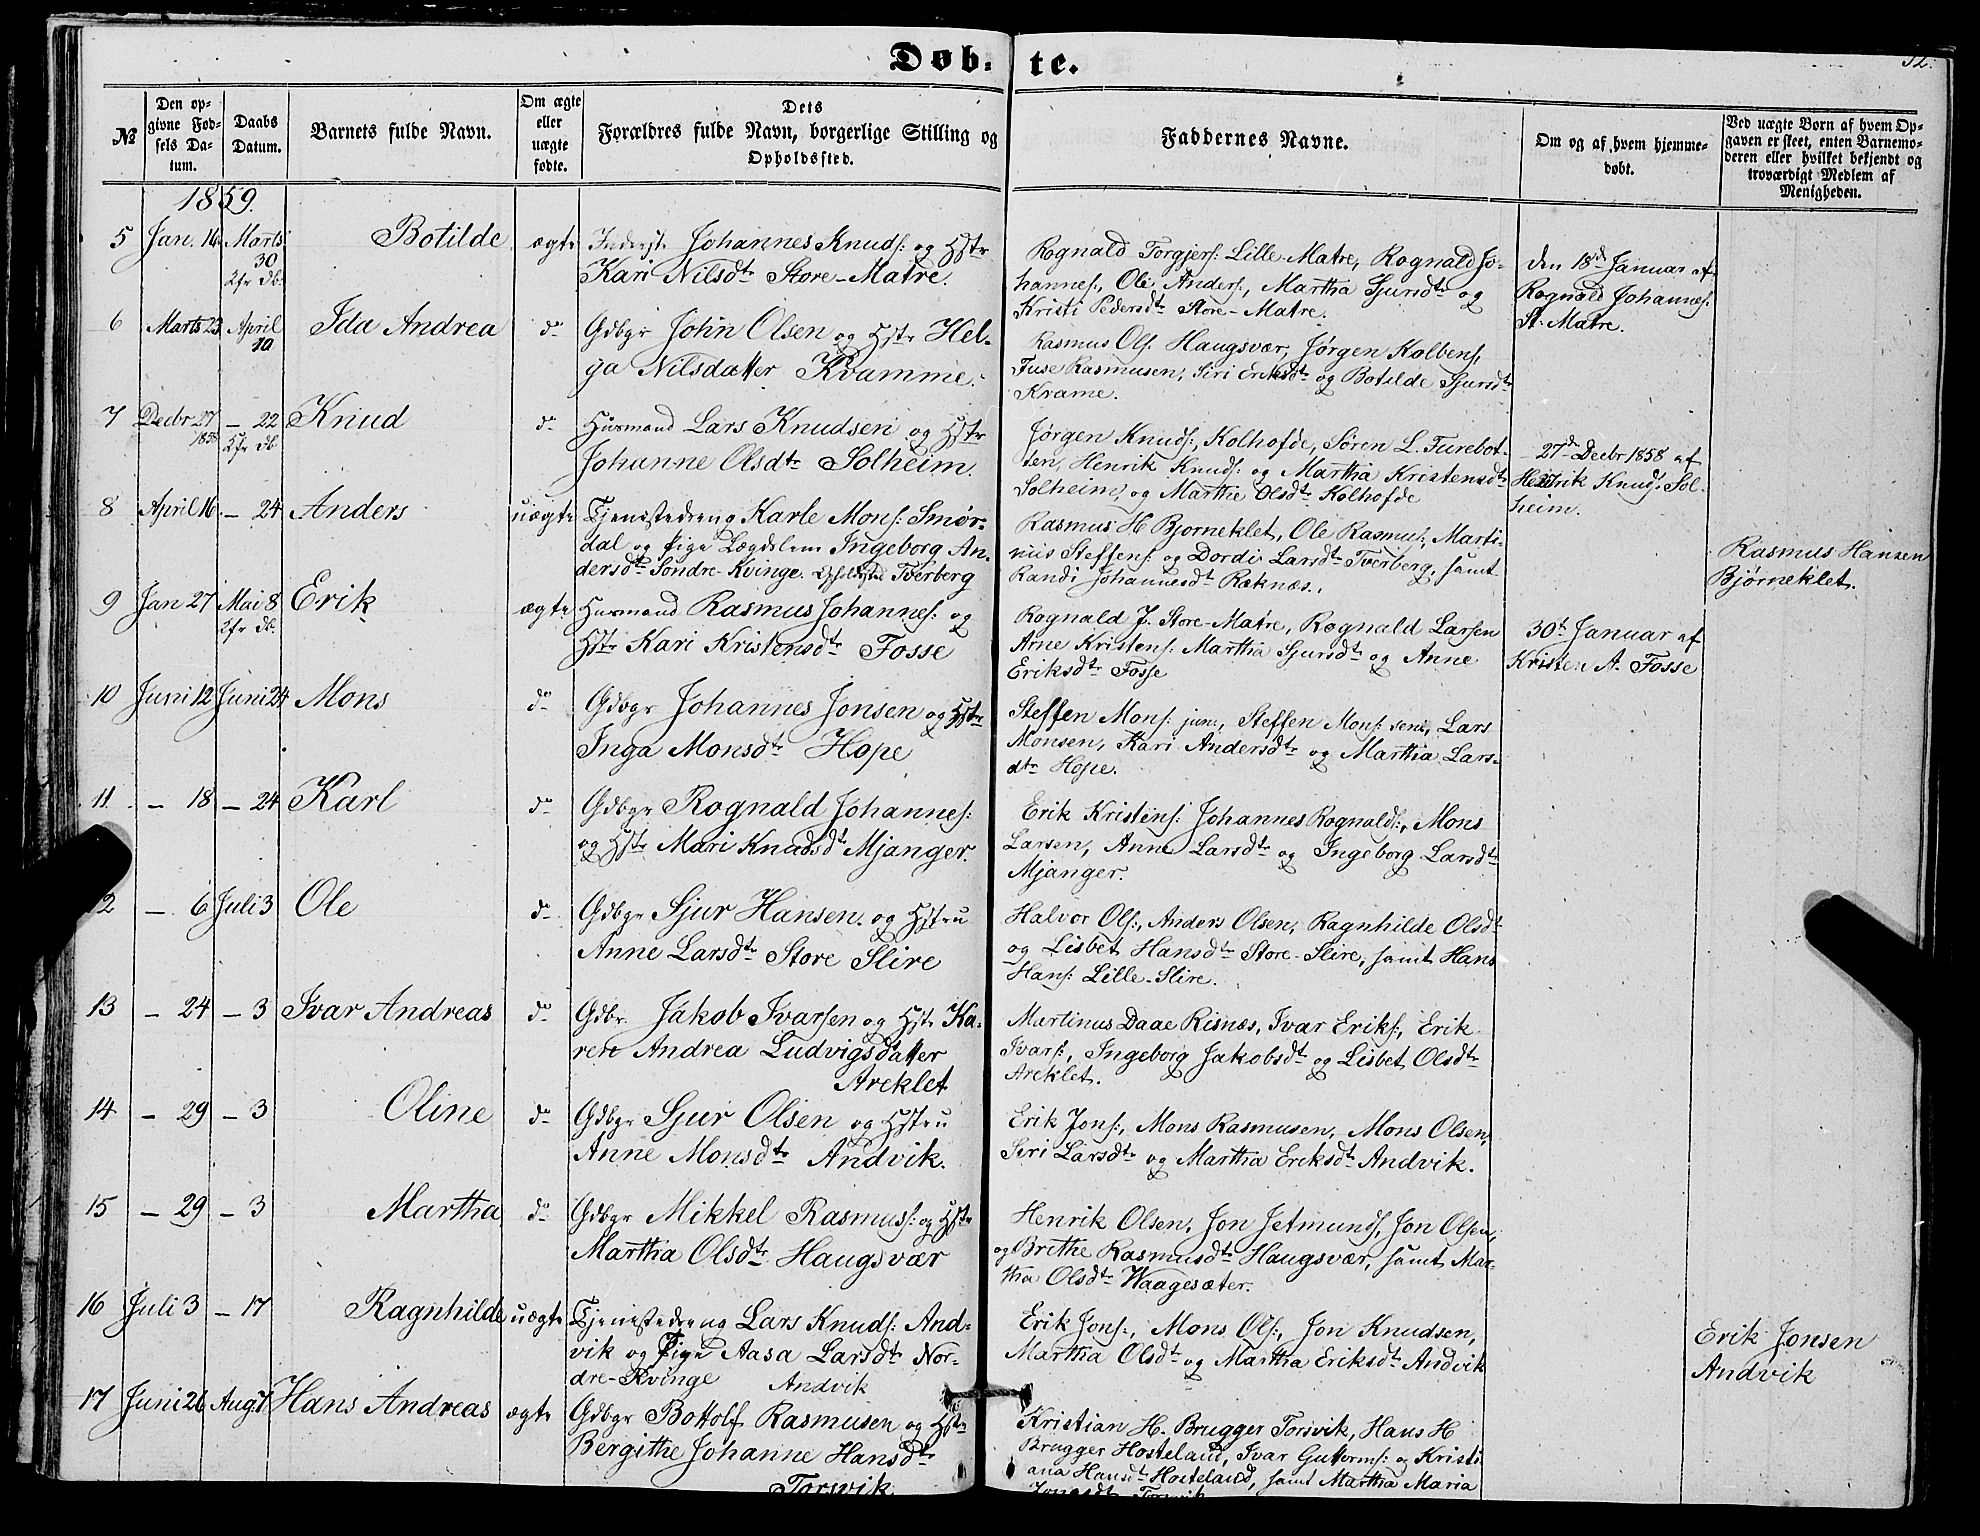 Døb- te.
№
Den opgivne Fødsels Datum.
Daabs Datum.
Barnets fulde Navn.
Om ægte eller uægte fødte.
Dets Forældres fulde Navn, borgerlige Stilling og Opholdssted.
Faddernes Navne.
Om og af hvem hjemmedøbt.
Ved uægte Børn af hvem Opgaven er skeet, enten Barnemoderen eller hvilket bekjendt og troværdigt Medlem af Menigheden.
1859.
5 Jan. 16 Marts 30 2fr db. Botilde ægte
Inderst Johannes Knuds: og Hstr
Kari Nilsdtr Store-Matre.
Rognald Torgjers: Lille-Matre, Rognald Jo-
hannes:, Ole Anders:, Martha Sjursdtr og
Kristi Pedersdtr Store-Matre.
den 18de Januar af
Rognald Johannes:
St. Matre.
6 Marts 23 April 10 Ida Andrea do
Gdbgr John Olsen og Hstr Hel-
ga Nilsdatter Kvamme.
Rasmus Ols. Haugsvær, Jørgen Kolbens,
Tuse Rasmusen, Siri Eriksdtr og Botilde Sjursdtr
Kvame.
7 Decbr 27 1858 – 22 2fr db Knud do
Husmand Lars Knudsen og Hstr
Johanne Olsdtr Solheim.
Jørgen Knuds: Kolhofde, Søren L. Furebot-
ten, Henrik Knuds: og Martha Kristensdtr
Solheim, og Marthe Olsdtr Kolhofde
27de Decbr 1858 af
Henrik Knuds: Sol-
heim.
8 April 16 – 24 Anders uægte
Tjenestedreng Karle Mons: Smør-
dal og Pige Lægdslem Ingeborg An-
dersdtr Søndre-Kvinge. Opholdsted Tverberg
Rasmus H Bjorneklet, Ole Rasmus:, Marti-
nus Steffens: og Dordi Larsdtr Tverberg, samt
Randi Johannesdtr Raknæs.
Rasmus Hansen
Bjørneklet.
9 Jan 27 Mai 8 2fr db. Erik ægte
Husmand Rasmus Johannes: og
Hstr Kari Kristensdtr Fosse
Rognald J. Store-Matre, Rognald Larsen
Arne Kristens: Martha Sjursdtr og Anne
Eriksdtr Fosse
30t Januar af
Kristen A. Fosse
10 Juni 12 Juni 24 Mons do
Gdbgr Johannes Jonsen og Hstr
Inga Monsdtr Hope
Steffen Mons: jun:, Steffen Mons: sen:, Lars
Monsen, Kari Andersdtr og Martha Lars-
dtr Hope.
11. – 18 – 24 Karl do
Gdbgr Rognald Johannes:
og Hstr Mari Knudsdtr Mjanger.
Erik Kristens: Johannes Rognalds:, Mons
Larsen, Anne Larsdtr og Ingeborg Larsdtr
Mjanger.
12 – 6 Juli 3 Ole do
Gdbgr Sjur Hansen og Hstru
Anne Larsdtr Store Slire
Halvor Ols:, Anders Olsen, Ragnhilde Olsdtr
og Lisbet Hansdtr Store-Slire, samt Hans
Hans: Lille-Slire.
13 – 24 – 3 Ivar Andreas do
Gdbr. Jakob Ivarsen og Hstr Ka-
ren Andrea Ludvigsdatter
Areklet
Martinus Daae Risnæs, Ivar Eriks:, Erik
Ivars:, Ingeborg Jakobsdtr og Lisbet Olsdtr
Areklet.
14 – 29 – 3 Oline do
Gdbgr Sjur Olsen og Hstru
Anne Monsdtr Andvik.
Erik Jons:, Mons Rasmusen, Mons Olsen,
Siri Larsdtr og Martha Eriksdtr Andvik.
15 – 29 – 3 Martha do
Gdbgr Mikkel Rasmus: og Hstr
Martha Olsdtr Haugsvær
Henrik Olsen, Jon Jetmunds, Jon Olsen,
og Brithe Rasmusdtr Haugsvær, samt Mar-
tha Olsdtr Waagesæter.
16 Juli 3 – 17 Ragnhilde uægte
Tjenestedreng Lars Knuds: And-
vik og Pige Aasa Larsdtr Nor-
dre-Kvinge Andvik
Erik Jons:, Mons Ols:, Jon Knudsen,
Martha Olsdtr og Martha Eriksdtr Andvik
Erik Jonsen
Andvik
17 Juni 26 Aug 7 Hans Andreas ægte
Gdbgr Bottolf Rasmusen og Hstr
Bergithe Johanne Hansdtr
Torsvik
Kristian H. Brugger Torsvik, Hans H
Brugger Hosteland, Ivar Guttorms: og Kristi
ana Hansdtr Hosteland, samt Martha Maria